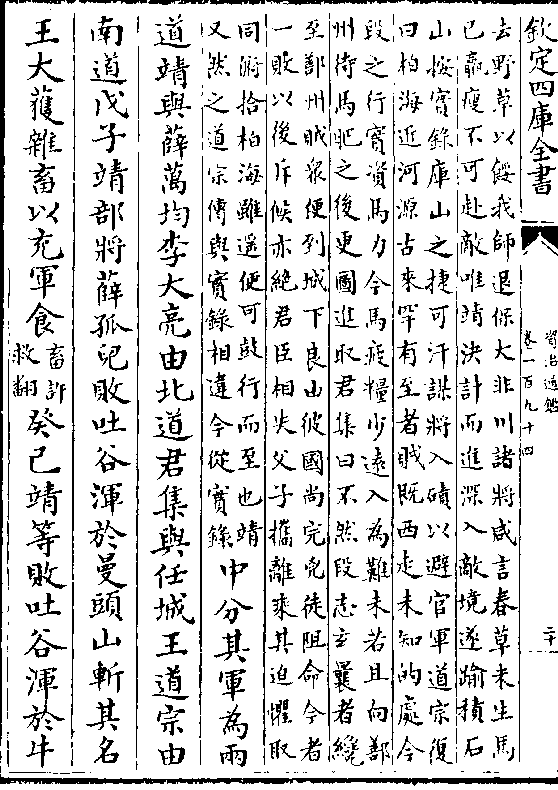 欽定四庫全書
資治通鑑
卷一百九十四
二十
去野草以餒我師退保大非川諸將咸言春草未生馬
已羸瘦不可赴敵唯靖決計而進深入敵境遂踰積石
山按實錄庫山之捷可汗謀將入磧以避官軍道宗復
曰柏海近河源古來罕有至者賊既西走未知的處今
段之行實資馬力今馬疲糧少遠入為難未若且向鄯
州待馬肥之後更圖進取君集曰不然段志玄曩者纔
至鄯州賊衆便到城下良山彼國尚完兇徒阻命今者
一敗以後斥候亦絶君臣相失父子攜離乘其迫懼取
同俯拾柏海雖遥便可鼓行而至也靖
又然之道宗傳與實錄相違今從實錄
中分其軍為兩
道靖與薛萬均李大亮由北道君集與任城王道宗由
南道戊子靖部將薛孤兒敗吐谷渾於曼頭山斬其名
王大獲雜畜以充軍食畜許救翻癸巳靖等敗吐谷渾於牛